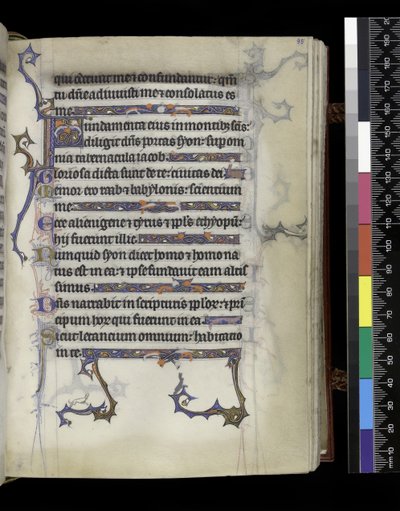 qui oderunt me et confundantur: qm̄
tu dn̄e adiuvisti me et consolatus es
me
Fundamenta eius in montib; scīs:
diligit dn̄s portas syon: sup om
nia tabernacula iacob.
Gloriosa dicta sunt de te: civitas dei
Memor ero raab et babylonis: scientium
me
Ecce alienigene et tyrus et ppls
hij fuerunt illic.
Numquid syon dicet homo et homo na
tus est in ea: et ipse fundavit eam altis
simus.
Dns narrabit in scripturis
cipum hor qui fuerunt in ea.
Sicut letancium omnium: habitacio
in te.